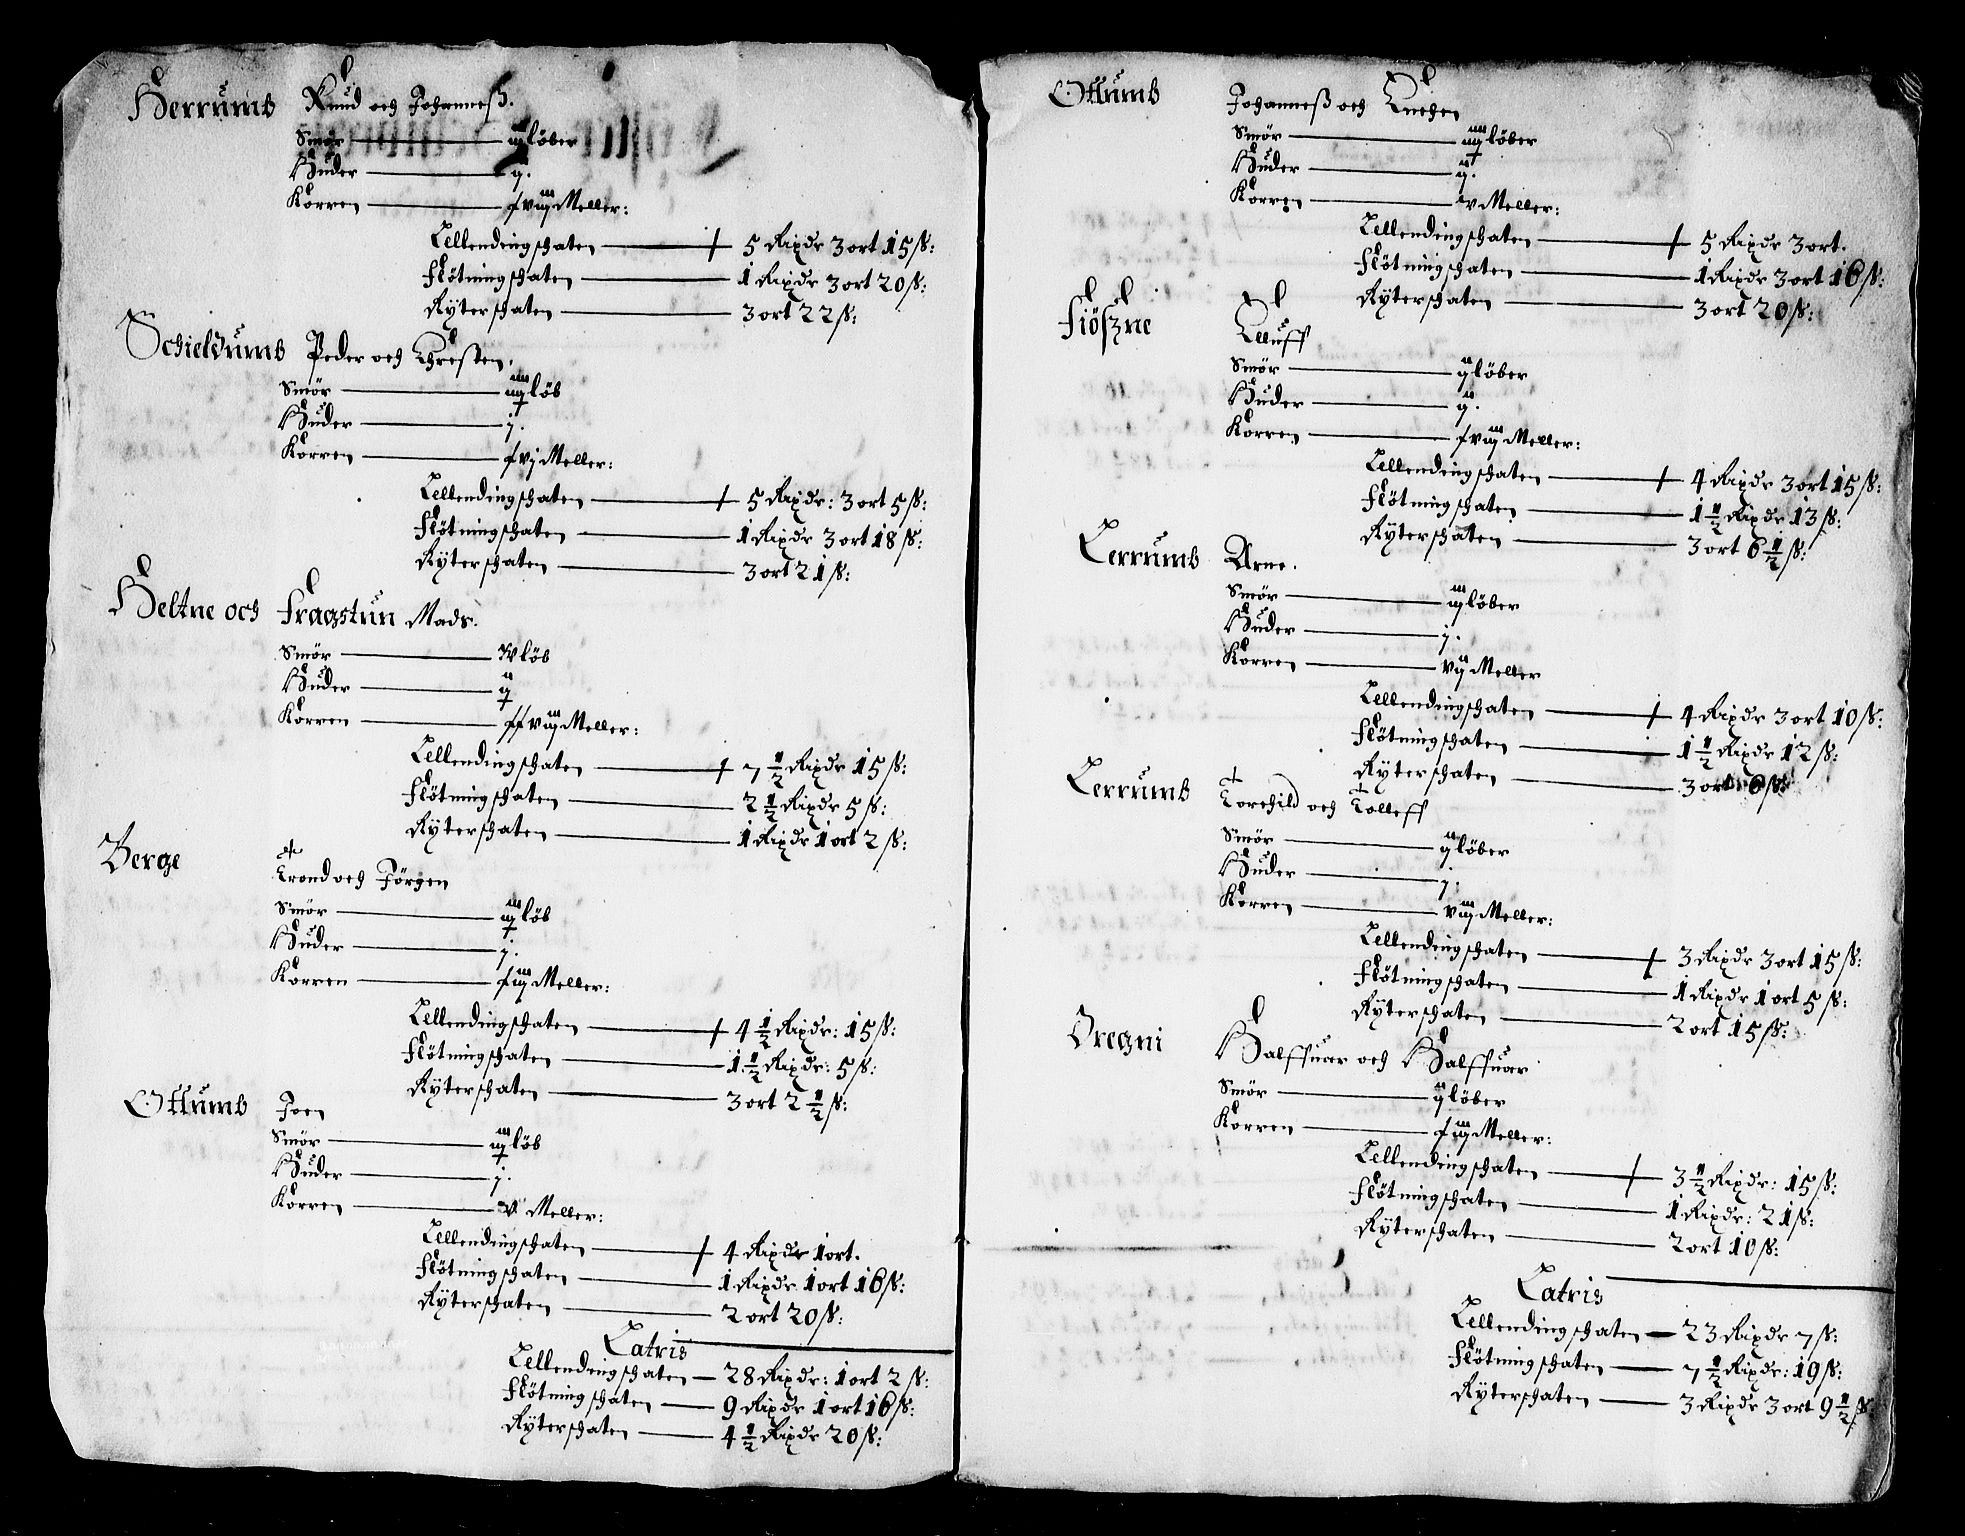 Herrumb Knud och Johanneß.
Smör iiij löber
Huder ij.
Korren xviij Meller:
Lellendingschaten 5 Rixdr 3 ort 15 ß:
Flötningschaten 1 Rixdr 3 ort 20 ß:
Rÿterschaten 3 ort 22 ß:
Schieldumb Peder och Chresten.
Smör iiij löb
Huder j.
Korren xvj Meller:
Lellendingschaten 5 Rixdr: 3 ort 5 ß:
Flötningschaten 1 Rixdr 3 ort 18 ß:
Rÿterschaten 3 ort 21 ß:
Heltne och Fragstun Mads.
Smör löb
Huder ij
Korren xxviij Meller:
Lellendingschaten 7 1/2 Rixdr 15 ß:
Flötningschaten 2 1/2 Rixdr 5 ß:
Rÿterschaten 1 Rixdr 1 ort 2 ß:
Berge
Trond och Jörgen
Smör iij löb
Huder j.
Korren xiij Meller:
Lellendingschaten 4 1/2 Rixdr: 15 ß:
Flötningschaten 1 1/2 Rixdr: 5 ß:
Rÿterschaten 3 ort 2 1/2 ß:
Ottumb Joen
Smör iij löb
Huder j.
Korren Meller:
Lellendingschaten 4 Rixdr 1 ort.
Flötningschaten 1 Rixdr 1 ort 16 ß:
Rÿterschaten 2 ort 20 ß:
Latris
Lellendingschaten 28 Rixdr: 1 ort 2 ß:
Flötningschaten 9 Rixdr 1 ort 16 ß:
Rÿterschaten 4 1/2 Rixdr 20 ß:
Ottumb Johanneß och
Smör iiij löber
Huder ij.
Korren xv Meller:
Lellendingschaten 5 Rixdr 3 ort.
Flötningschaten 1 Rixdr 3 ort 16 ß:
Rÿterschaten 3 ort 20 ß:
Fiößne Elluff
Smör ij löber
Huder ij.
Korren xviij Meller:
Lellendingschaten 4 Rixdr 3 ort 15 ß:
Flötningschaten 1 1/2 Rixdr 13 ß:
Rÿterschaten 3 ort 6 1/2 ß:
Lerrumb Arne.
Smör iij löber
Huder j.
Korren vij Meller
Lellendingschaten 4 Rixdr 3 ort 10 ß:
Flötningschaten 1 1/2 Rixdr 12 ß:
Rÿterschaten 3 ort 6 ß:
Lerrumb Torchild och Tolleff
Smör ij löber
Huder j.
Korren viij Meller:
Lellendingschaten 3 Rixdr 3 ort 15 ß:
Flötningschaten 1 Rixdr 1 ort 5 ß:
Rÿterschaten 2 ort 15 ß:
Dregni Halffuar och Halffuar
Smör ij löber
Korren xiij Meller:
Lellendingschaten 3 1/2 Rixdr: 15 ß:
Flötningschaten 1 Rixdr: 21 ß:
Rÿterschaten 2 ort 10 ß:
Latris
Lellendingschaten 23 Rixdr 7 ß:
Flötningschaten 7 1/2 Rixdr: 19 ß:
Rÿterschaten 3 Rixdr 3 ort 9 1/2 ß: